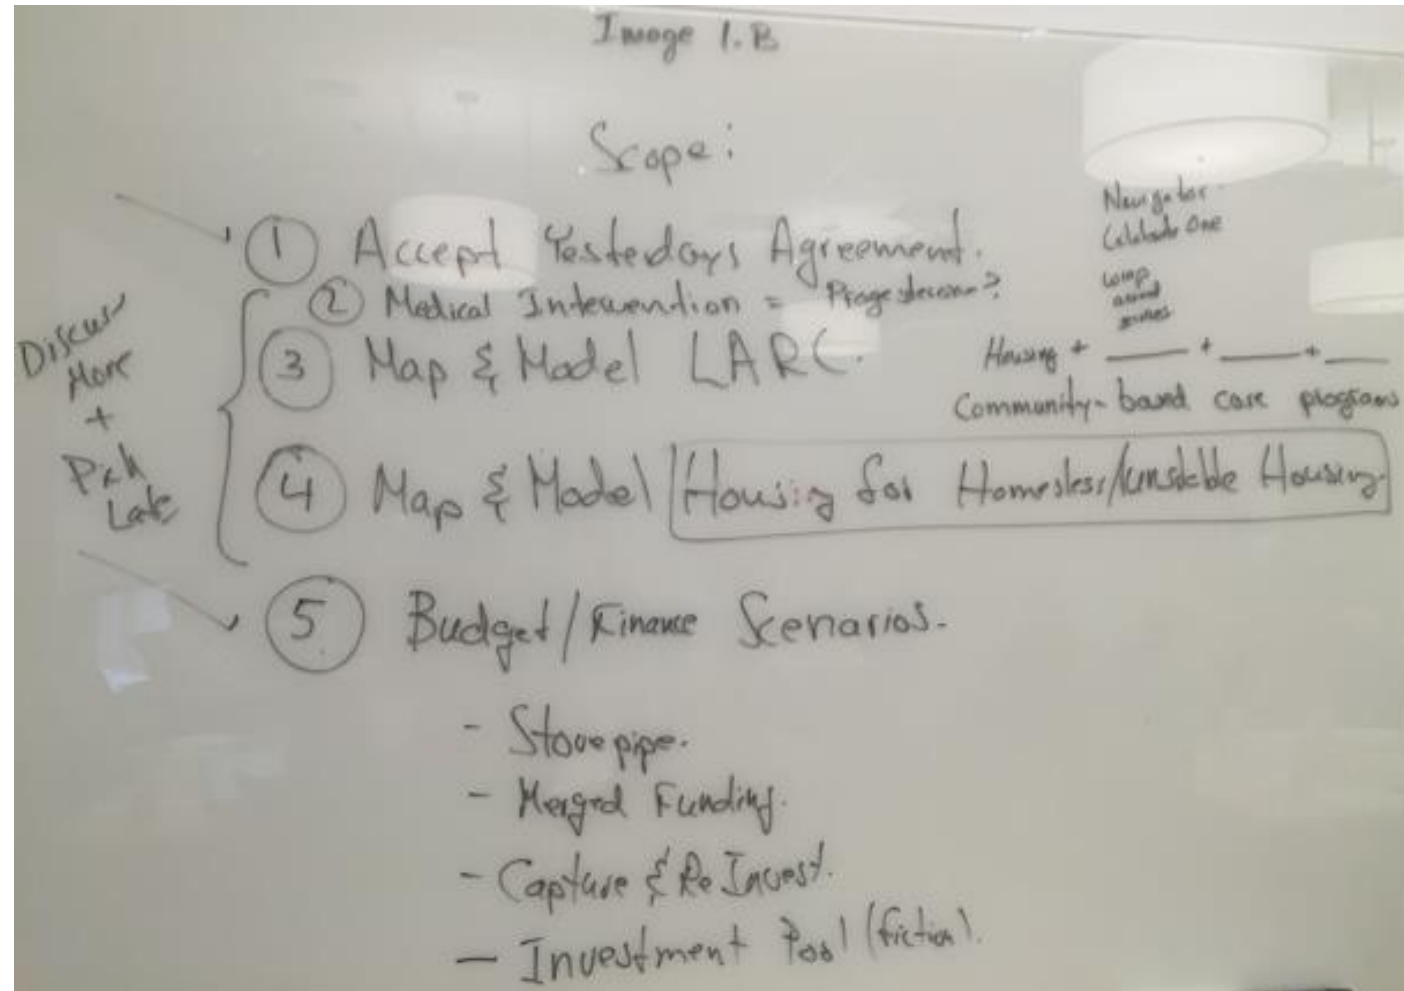 Image 1.B
Scope:
① Accept Yesterdays Agreement.
② Medical Intervention = Progesterone?
③ Map & Model LARC.
④ Map & Model Housing for Homeless/unstable Housing.
⑤ Budget/Finance Scenarios.
- Stovepipe.
- Merged Funding.
- Capture & Re Invest.
- Investment Pool (fiction).
Discuss
More
+
Pick
Late
Navigator
One
Housing + ____ + ____ + ____
Community-based care programs